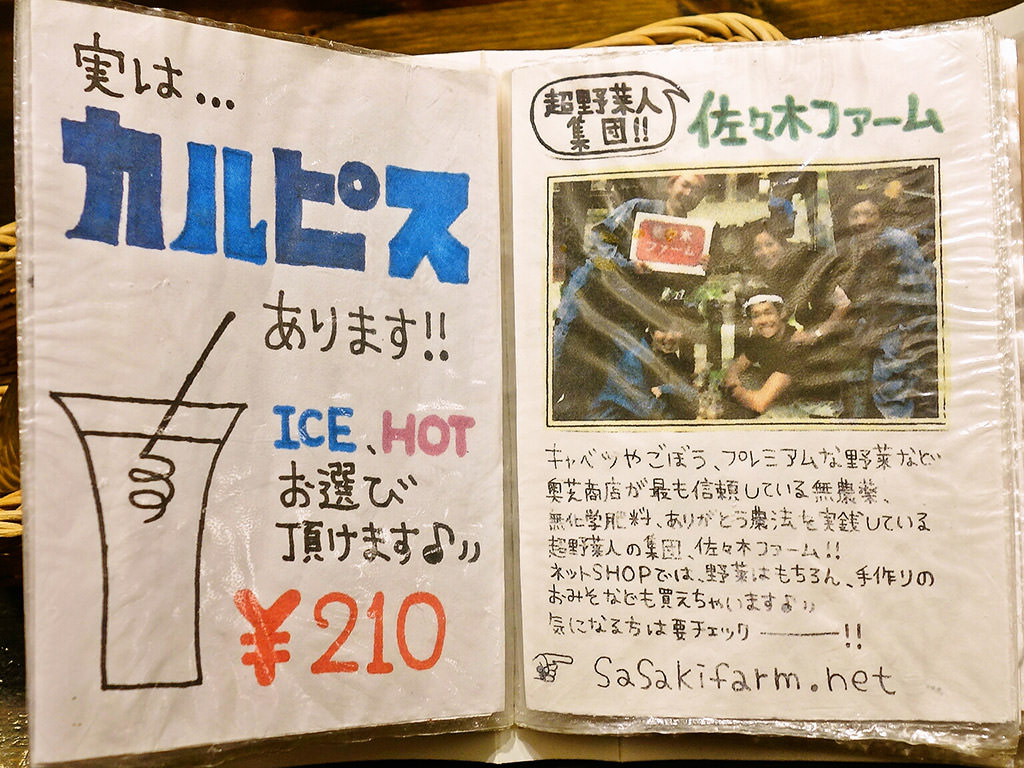 実は...
カルピス
あります!!
ICE、HOT
お選び
頂けます♪
¥210
超野菜人
集団!!
佐々木ファーム
ファーム
キャベツやごぼう、プレミアムな野菜など
奥芝商店が最も信頼している無農薬、
無化学肥料、ありがとう農法を実践している
超野菜人の集団、佐々木ファーム!!
ネットSHOPでは、野菜はもちろん、手作りの
おみそなども買えちゃいます♪
気になる方は要チェック――!!
☞ sasakifarm.net